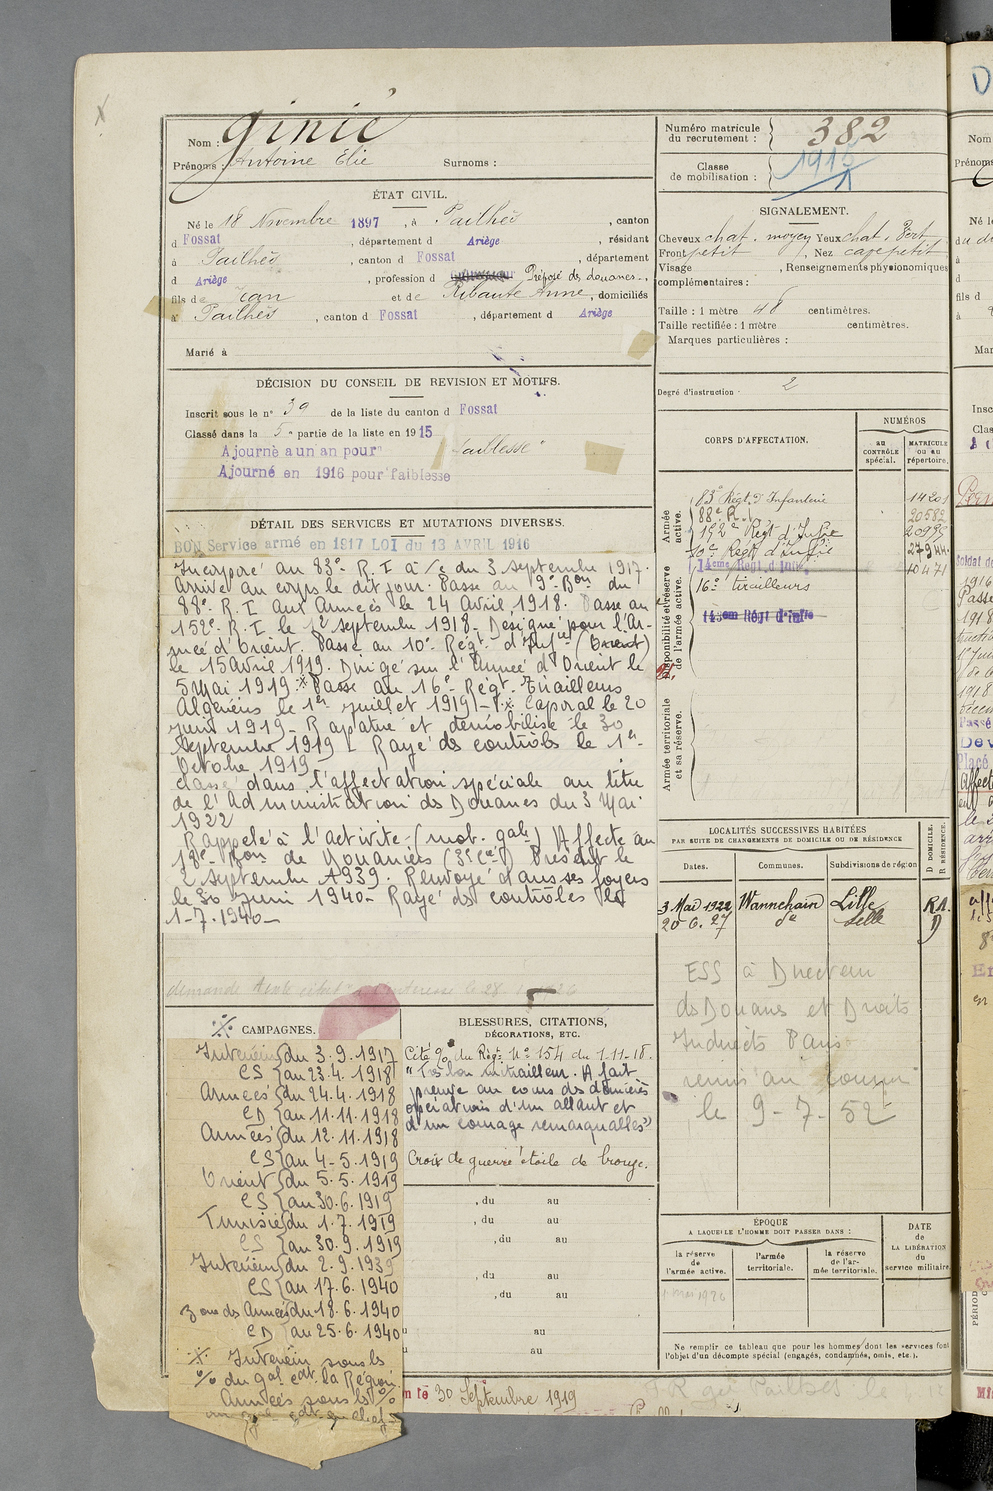 Nom : Ginié
Prénoms : Antoine Elie Surnoms :
ÉTAT CIVIL.
Né le 18 Novembre 1897, à Pailhès, canton
d Fossat, département d Ariège, résidant
à Pailhès, canton d Fossat, département
d Ariège, profession d Préposé des douanes,
fils de Jean et de Ribaute Anne, domiciliés
à Pailhès, canton d Fossat, département d Ariège
Marié à
DÉCISION DU CONSEIL DE REVISION ET MOTIFS.
Inscrit sous le n° 39 de la liste du canton d Fossat
Classé dans la 5e partie de la liste en 1915
Ajourné à un an pour "faiblesse"
Ajourné en 1916 pour faiblesse
DÉTAIL DES SERVICES ET MUTATIONS DIVERSES.
BON Service armé en 1917 LOI du 13 AVRIL 1916
Incorporé au 83e R.I à/c du 3 septembre 1917.
Arrivé au corps le dit jour. Passé au 9e Bon du
88e R.I aux Armées le 24 Avril 1918. Passé au
152e R.I le 12 septembre 1918. Désigné pour l'Ar-
mée d'Orient. Passé au 10e Régt d'Infie (Orient)
le 15 Avril 1919. Dirigé sur l'Armée d'Orient le
5 Mai 1919. Passé au 16e Régt. Tirailleurs
Algériens le 1er juillet 1919. Caporal le 20
juin 1919 - Rapatrié et démobilisé le 30
septembre 1919 - Rayé des contrôles le 1er
Octobre 1919
Classé dans l'affectation spéciale au titre
de l'Administration des Douanes du 3 Mai
1922
Rappelé à l'activité (mob. gale) Affecté au
18e Bon de Douaniers (3e Cie) Présent le
2 septembre 1939. Renvoyé dans ses foyers
le 30 juin 1940 - Rayé des contrôles le
1-7-1940 -
demande
CAMPAGNES.
Intérieur du 3.9.1917
CS au 23.4.1918
Armées du 24.4.1918
CD au 11.11.1918
Armées du 12.11.1918
CS au 4-5.1919
Orient du 5.5.1919
CS au 30.6.1919
Tunisie du 1.7.1919
CS au 30.9.1919
Intérieur du 2.9.1939
CS au 17.6.1940
zone des Armées du 18.6.1940
CD au 25.6.1940
Intérieur sous les
% du gal cdt la Région
Armées sous les %
BLESSURES, CITATIONS,
DÉCORATIONS, ETC.
Cité % du Régt N° 154 du 1-11-18.
"Très bon mitrailleur. A fait
preuve au cours des dernières
opérations d'un allant et
d'un courage remarquables"
Croix de guerre étoile de bronze.
, du au
, du au
, du au
, du au
, du au
au
au
le 30 Septembre 1919
Numéro matricule
du recrutement : 382
Classe
de mobilisation :
SIGNALEMENT.
Cheveux chat. moyen Yeux chat. vert
Front petit, Nez cave petit
Visage, Renseignements physionomiques
complémentaires :
Taille : 1 mètre 48 centimètres.
Taille rectifiée : 1 mètre centimètres.
Marques particulières :
Degré d'instruction : 2
CORPS D'AFFECTATION.
NUMÉROS
au
CONTRÔLE
spécial.
MATRICULE
OU AU
répertoire.
Armée
active.
83e Régt d'Infanterie 14201
88e R.I 20582
152e Régt d'Infie 20995
10e Régt d'Infie 27944
14eme Régt d'Infie 10471
16e tirailleurs
143em Régt d'Infie
Disponibilité et réserve
de l'armée active.
Armée territoriale
et sa réserve.
LOCALITÉS SUCCESSIVES HABITÉES
PAR SUITE DE CHANGEMENTS DE DOMICILE OU DE RÉSIDENCE
Dates. Communes. Subdivisions de région
D. DOMICILE.
R. RÉSIDENCE.
3 Mai 1922 Wannehain Lille RA.
20-6.27 de delle D
ESS à Directeur
des Douanes et Droits
Indirects Paris
le 9-7-52
ÉPOQUE
A LAQUELLE L'HOMME DOIT PASSER DANS :
la réserve
de
l'armée active.
l'armée
territoriale.
la réserve
de l'ar-
mée territoriale.
DATE
de
LA LIBÉRATION
du
service militaire.
Ne remplir ce tableau que pour les hommes dont les services font
l'objet d'un décompte spécial (engagés, condamnés, omis, etc.).